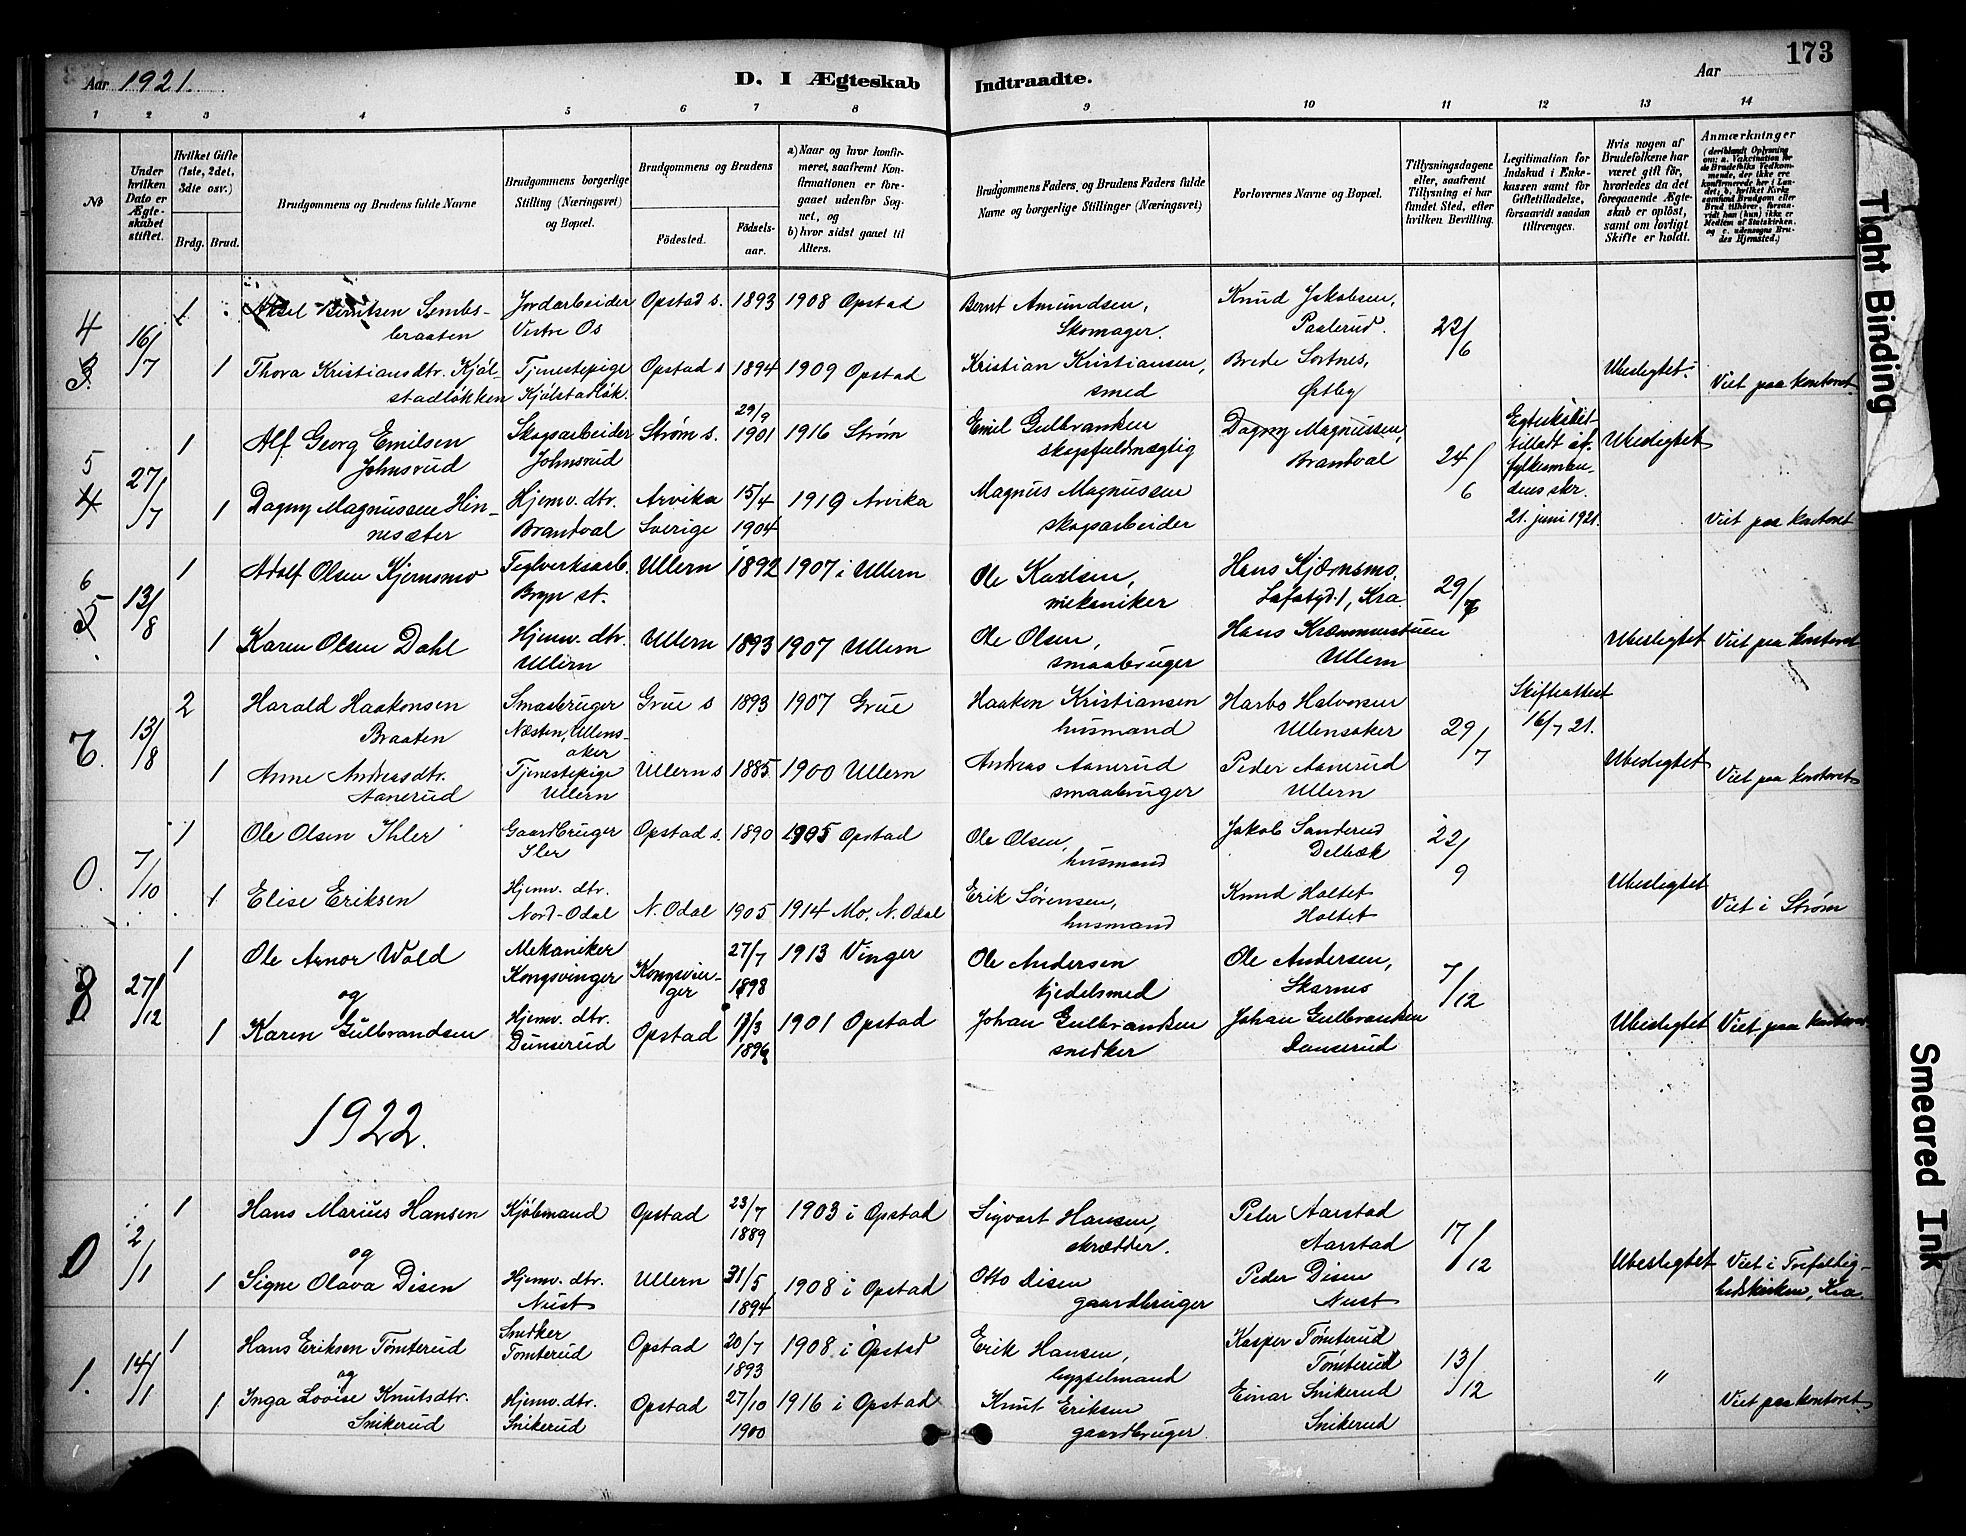 173
Aar 1921.
D. I Ægteskab Indtraadte.
Aar
1 2 3 4 5 6 7 8 9 10 11 12 13 14
No
Under hvilken Dato er Ægteskabet stiftet.
Hvilket Gifte (1ste, 2det, 3die osv.)
Brdg. Brud.
Brudgommens og Brudens fulde Navne
Brudgommens borgerlige Stilling (Næringsvei) og Bopæl.
Brudgommens og Brudens
Fødested.
Fødsels-aar.
a) Naar og hvor konfirmeret, saafremt Konfirmationen er foregaaet udenfor Sognet, og
b) hvor sidst gaaet til Alters.
Brudgommens Faders og Brudens Faders fulde Navne og borgerlige Stillinger (Næringsvei)
Forlovernes Navne og Bopæl.
Tillysningsdagene eller, saafremt Tillysning ei har fundet Sted, efter hvilken Bevilling.
Legitimation for Indskud i Enkekassen samt for Giftetilladelse, forsaavidt saadan tiltrænges.
Hvis nogen af Brudefolkene har været gift før, hvorledes da det foregaaende Ægteskab er opløst, samt om lovligt Skifte er holdt.
Anmærkninger
(deriblandt Oplysning om: a. Vakcination for de Brudefolks Vedkommende, der ikke ere konfirmerede her i Landet; b. hvilket Kirkesamfund Brudgom eller Brud tilhører, forsaavidt han (hun) ikke er Medlem af Statskirken, og c. udensogns Brudes Hjemsted.)
4 16/7 1 Aksel Berntsen Sembs- Jordarbeider Opstad s. 1893 1908 Opstad Bernt Amundsen, Knud Jakobsen, 22/6
braaten Vestre Os Skomager. Paalerud.
3. 1 Thora Kristiansdtr. Kjøl- Tjenestepige Opstad s 1894 1909 Opstad Kristian Kristiansen, Brede Sortnes, Ubeslegtet. Viet paa kontoret
stadløkken Kjølstadløk. smed Østby
5 27/7 1 Alf Georg Emilsen Skogsarbeider Strøm s. 29/9 1901 1916 Strøm Emil Gulbranken Dagny Magnussen, 24/6 Egteskabet Ubeslegtet
Johnsrud Johnsrud skogfuldmægtig Brandval tilladt av
fylkesman-
4 1 Dagny Magnussen Hin- Hjemv. dtr. Arvika 15/4 1919 Arvika Magnus Magnussen dens skr.
nesæter Brandval Sverige 1904 skogsarbeider 21. juni 1921. Viet paa kontoret
6 13/8 1 Adolf Olsen Kjernsmo Teglverksarb. Ullern 1892 1907 i Ullern Ole Karlsen, Hans Kjærnsmo, 29/7
5. Bryn st. mekaniker 1, Kra.
1 Karen Olsen Dahl Hjemv. dtr. Ullern 1893 1907 Ullern Ole Olsen, Hans Kræmmerstuen Ubeslegtet Viet paa kontoret
Ullern smaabruger Ullern
13/8 2 Harald Haakensen Smaabruger Grue s 1893 1907 Grue Haaken Kristiansen Harbo Halvorsen 29/7 Skifteattest
Braaten Næsten, Ullens- husmand Ullensaker 16/7 21.
aker
1 Anne Andreasdtr. Tjenestepige Ullern s 1885. 1900 Ullern Andreas Aanerud Peder Aanerud Ubeslegtet Viet paa kontoret
Aanerud Ullern smaabruger Ullern
0. 7/10 1 Ole Olsen Ihler Gaardbruger Opstad s. 1890 1905 Opstad Ole Olsen, Jakob Sanderud 22/9
Iler husmand Delbæk
1 Elise Eriksen Hjemv. dtr. N. Odal 1905 1914 Mo, N. Odal Erik Sørensen, Knud Holtet Ubeslegtet Viet i Strøm
Nord-Odal husmand Holtet
8 27/12 1 Ole Arnor Wold Mekaniker Kongsvin- 27/7 1913 Vinger Ole Andersen Ole Andersen, 7/12
og Kongsvinger ger 1898 kjedelsmed Skarnes
1 Karen Gulbrandsen Hjemv. dtr. Opstad 13/3 1901 Opstad Johan Gulbrandsen Johan Gulbrandsen Ubeslegtet Viet paa kontoret
Dunserud 1896 snedker Dunserud
1922.
0 2/1 1 Hans Marius Hansen Kjøbmand Opstad 23/7 1903 i Opstad Sigvart Hansen, Peter Aarstad 17/12
og 1889 skrædder. Aarstad
1 Signe Olava Disen Hjemv. dtr. Ullern 31/5 1908 i Opstad Otto Disen Peder Disen Ubeslegtet Viet i Trefoldig-
Nust 1894 gaardbruger Nust hedskirken, Kra.
1. 14/1 1 Hans Eriksen Tømterud Snedker Opstad 20/7 1908 i Opstad Erik Hansen, Kasper Tømterud 13/12
og Tømterud 1893 bygselmand Tømterud "
1 Inga Lovise Knutsdtr. Hjemv. dtr. Opstad 27/10 1916 i Opstad Knut Eriksen Einar Snikerud Viet paa kontoret
Snikerud Snikerud 1900 gaardbruger. Snikerud
Tight Binding
Smeared Ink